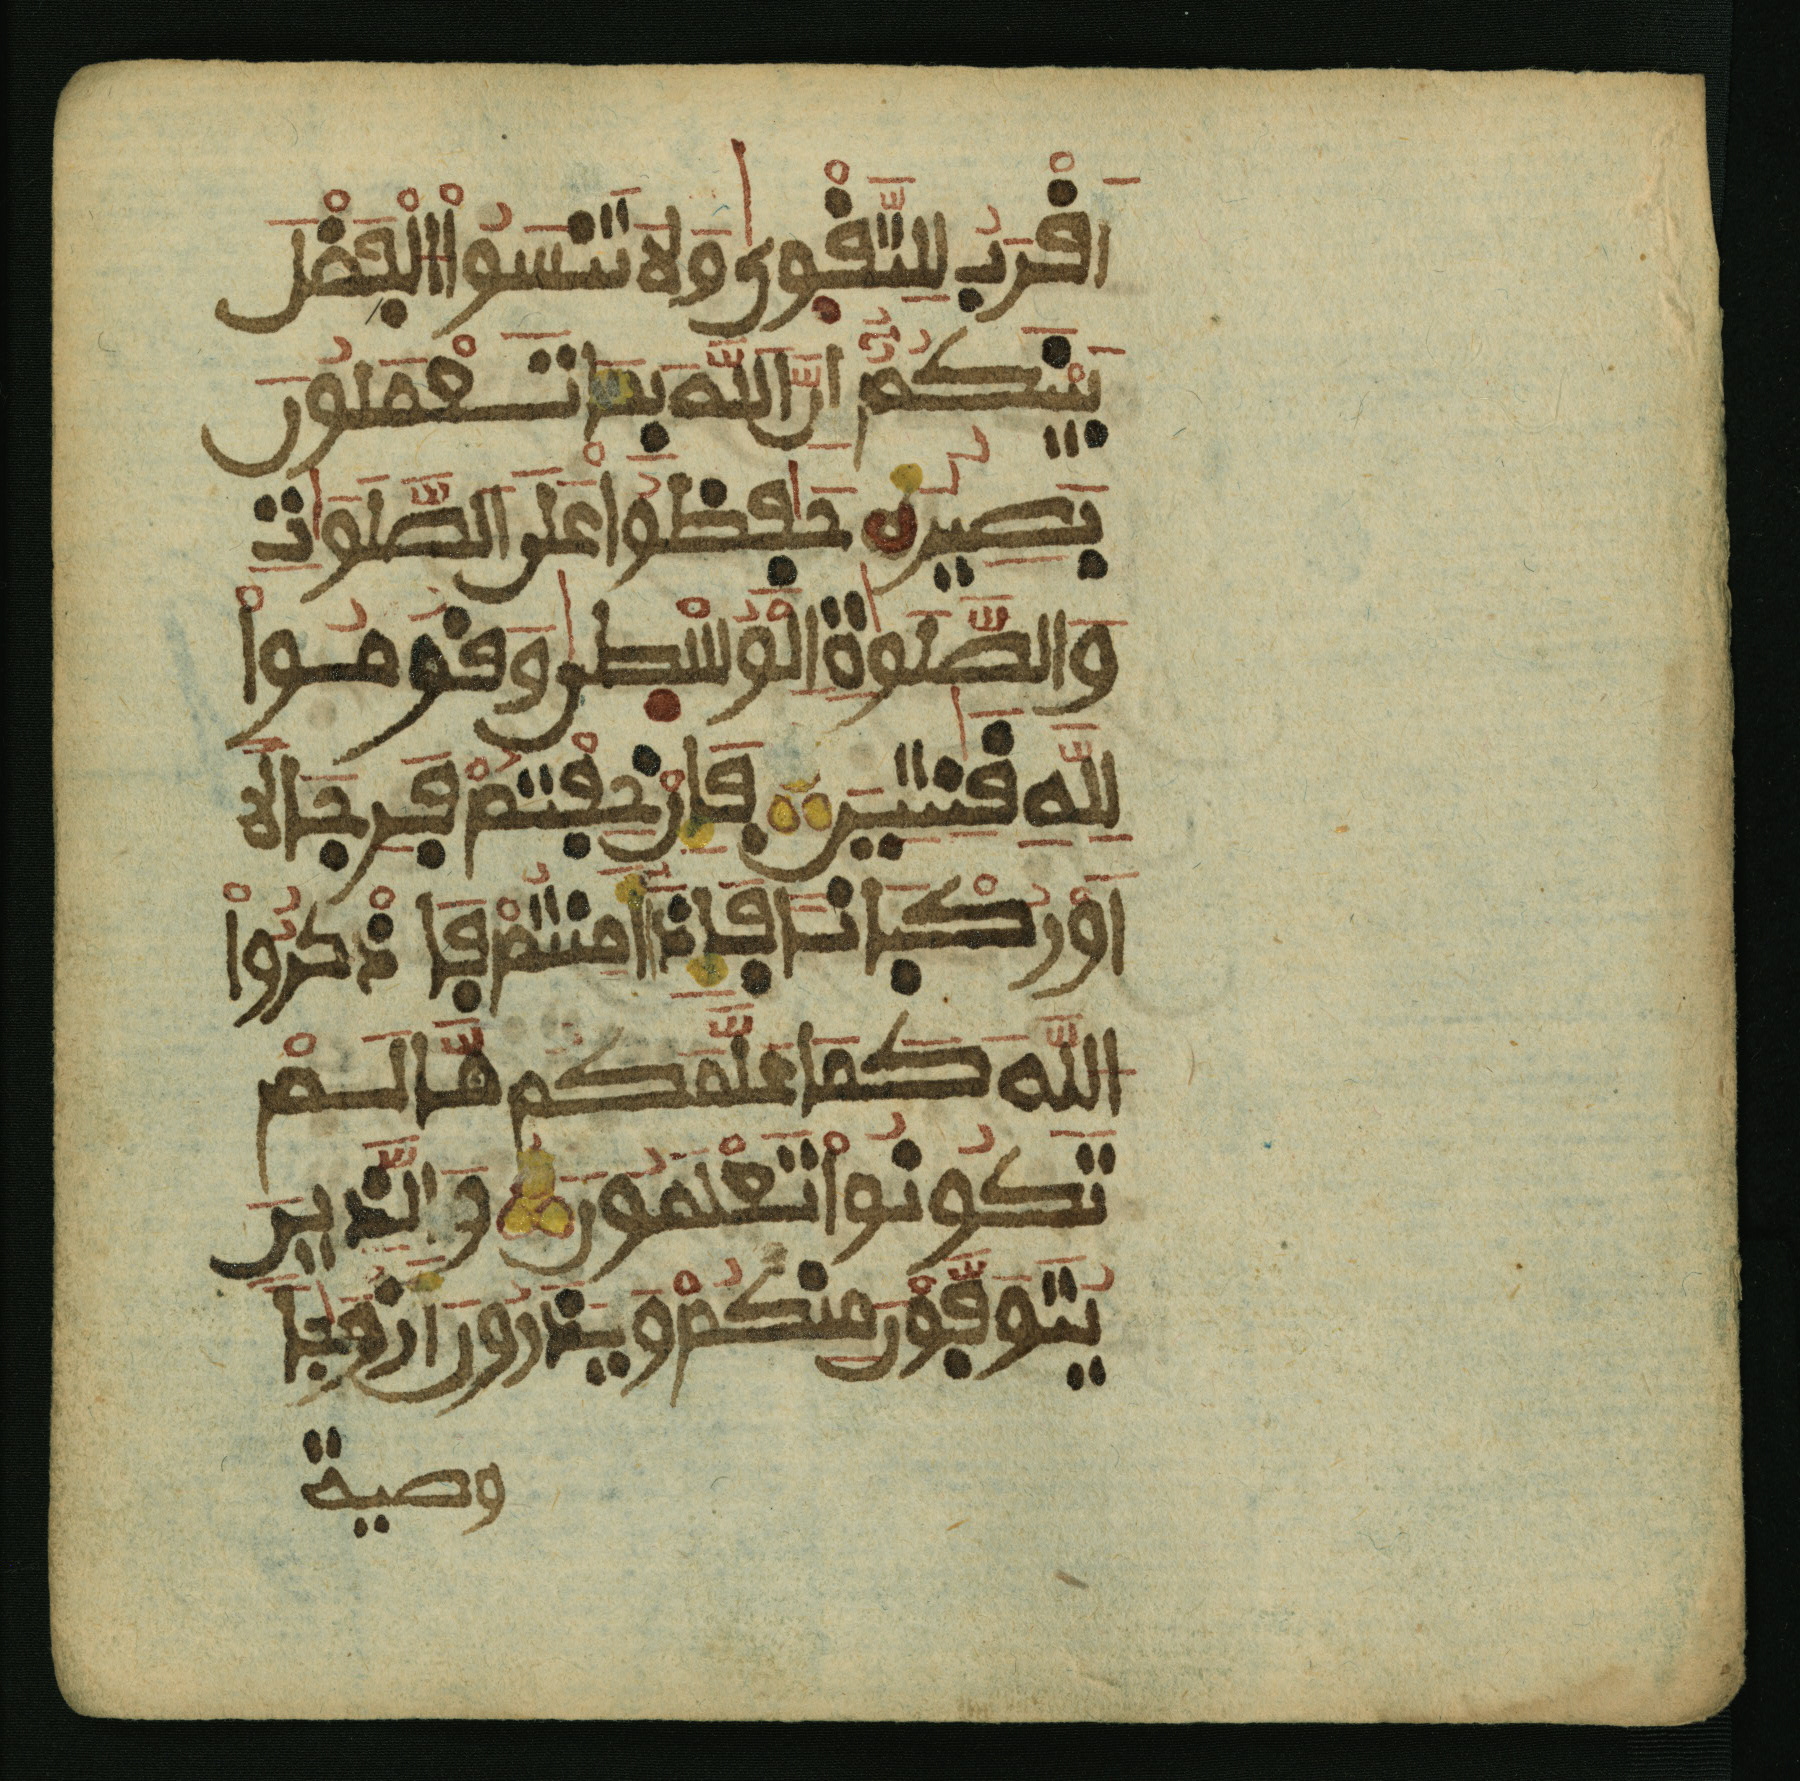 اَقْرَبُ لِلتَّقْوٰى وَلَا تَنسَوُاْ االْفَضْلَ
بَيْنَكُمُۥ إِنَّ اَللَّهَ بِمَا تَعْمَلُونَ
بَصِيرٌ حَٰفِظُواْ عَلَى اَلصَّلَوَٰتِ
وَالصَّلَوٰةِ الْوُسْطٰى وَقُومُواْ
لِلَّهِ قَٰنِتِينَ فَإِنْ خِفْتُمْ فَرِجَالًا
اَوْ رُكْبَانًا فَإِذَا أَمِنتُمْ فَاذْكُرُواْ
اللَّهَ كَمَا عَلَّمَكُم مَّا لَمْ
تَكُونُواْ تَعْلَمُونَ وَالَّذِينَ
يُتَوَفَّوْنَ مِنكُمْ وَيَذَرُونَ أَزْوَٰجًا
وصية